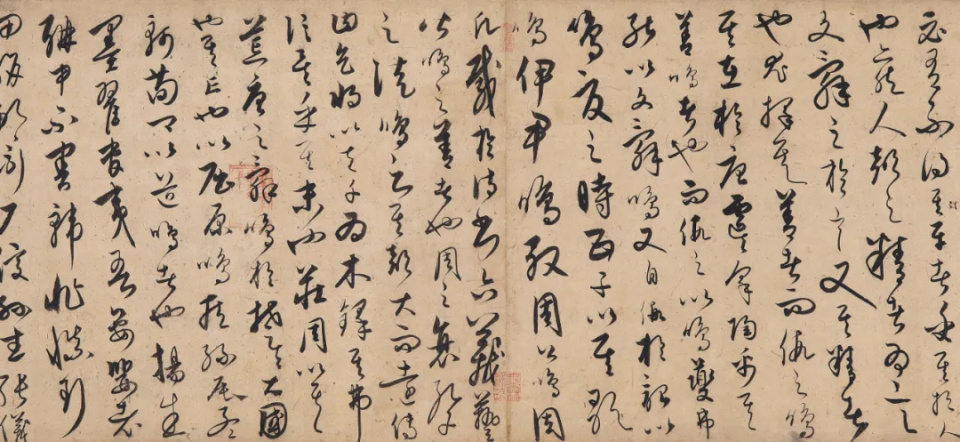 必有不得其平者乎其於人
也亦然人聲之精者為言
文辭之於言又其精者
也尤擇其善者而假之鳴
其在於唐虞咎陶禹其
善鳴者也而假之以鳴夔弗
能以文辭鳴又自假於韶以
鳴夏之時五子以其歌
鳴伊尹鳴殷周公鳴周
凡載於詩書六藝
皆鳴之善者也周之衰孔子
之徒鳴之其聲大而遠傳
曰天將以夫子為木鐸其弗
信矣乎其末也莊周以其
荒唐之辭鳴於楚楚大國
也其亡也以屈原鳴臧孫辰孟
軻荀卿以道鳴者也揚朱
墨翟管夷吾晏嬰老
聃申不害韓非慎到
田駢鄒衍尸佼孫武張儀